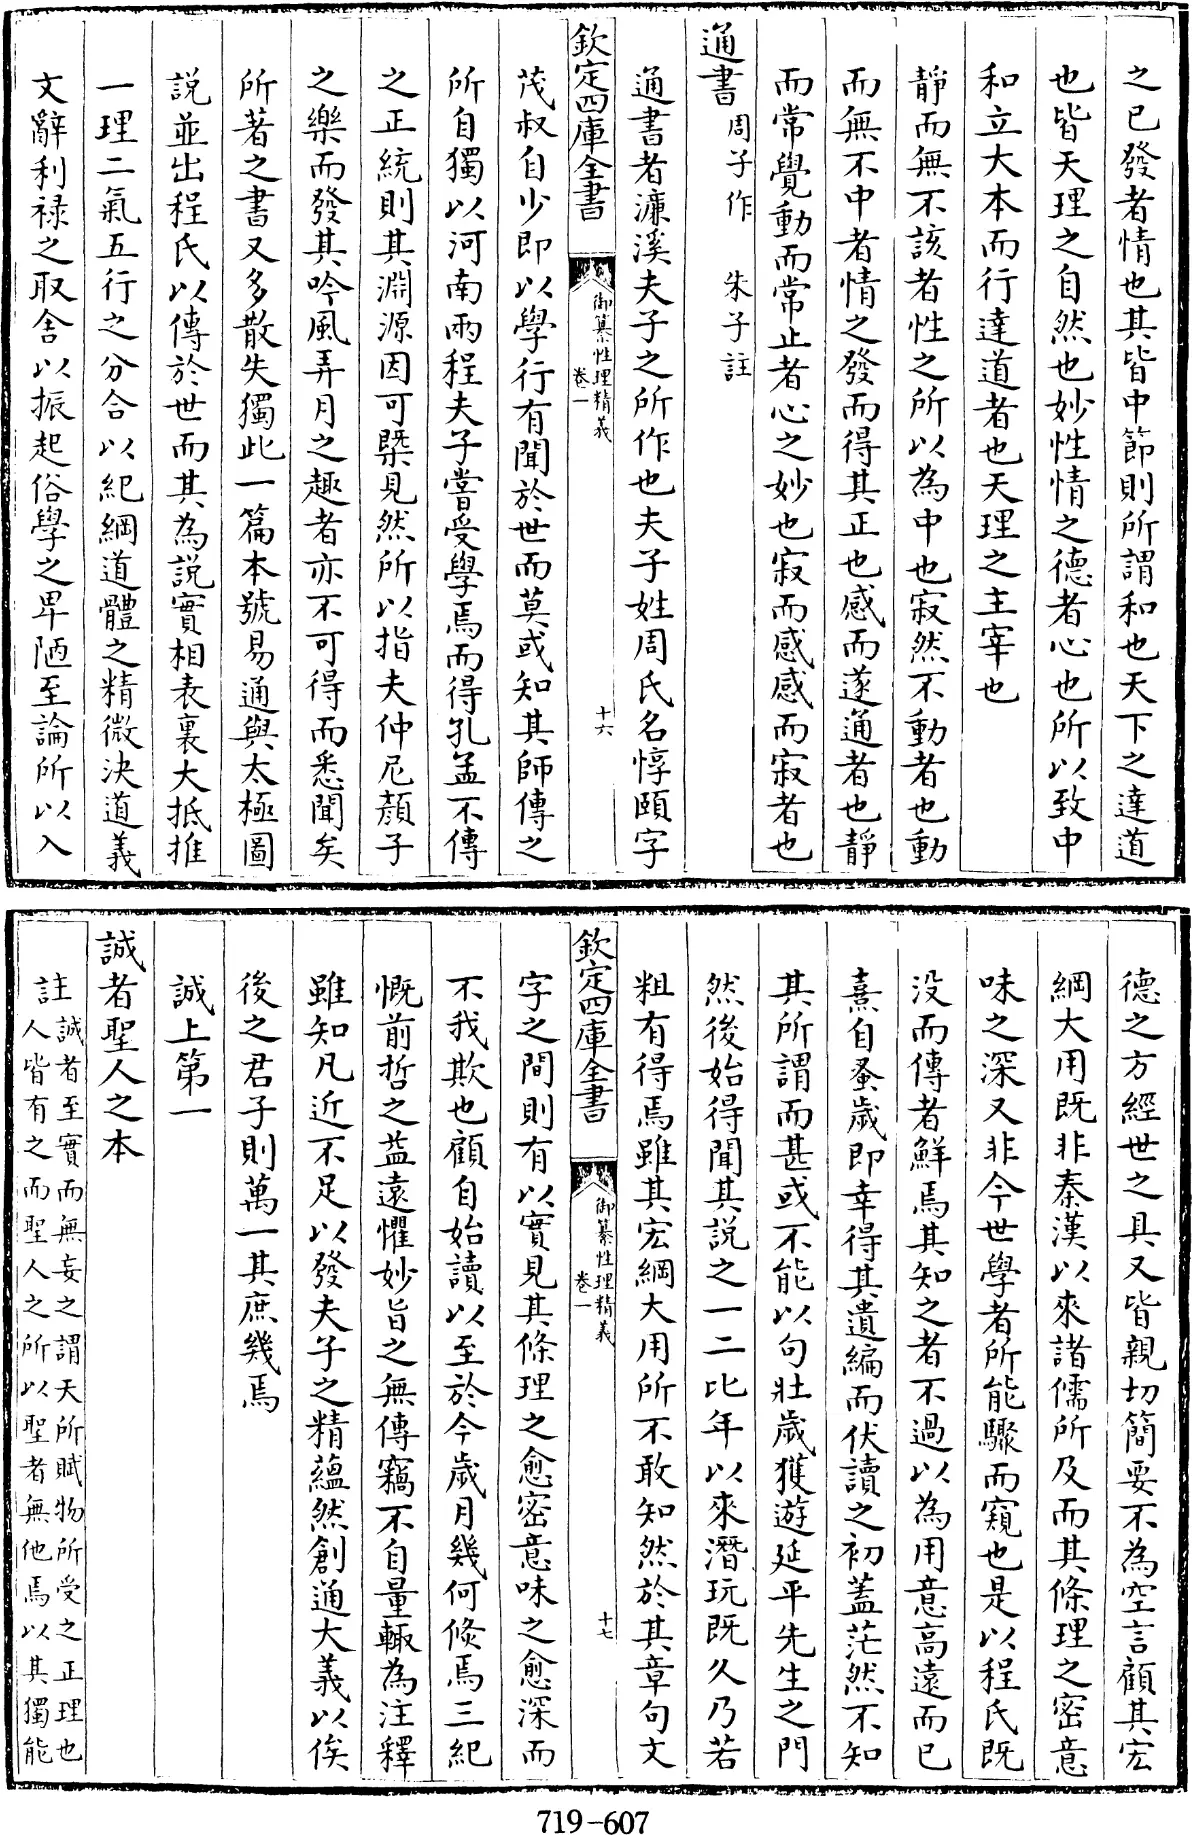 之已發者情也其皆中節則所謂和也天下之達道
也皆天理之自然也妙性情之德者心也所以致中
和立大本而行達道者也天理之主宰也
靜而無不該者性之所以為中也寂然不動者也動
而無不中者情之發而得其正也感而遂通者也靜
而常覺動而常止者心之妙也寂而感感而寂者也
通書 周子作 朱子註
通書者濂溪夫子之所作也夫子姓周氏名惇頤字
欽定四庫全書 御纂性理精義 卷一 十六
茂叔自少即以學行有聞於世而莫或知其師傳之
所自獨以河南兩程夫子嘗受學焉而得孔孟不傳
之正統則其淵源因可槩見然所以指夫仲尼顏子
之樂而發其吟風弄月之趣者亦不可得而悉聞矣
所著之書又多散失獨此一篇本號易通與太極圖
說並出程氏以傳於世而其為說實相表裏大抵推
一理二氣五行之分合以紀綱道體之精微決道義
文辭利祿之取舍以振起俗學之卑陋至論所以入
德之方經世之具又皆親切簡要不為空言顧其宏
綱大用既非秦漢以來諸儒所及而其條理之密意
味之深又非今世學者所能驟而窺也是以程氏既
沒而傳者鮮焉其知之者不過以為用意高遠而已
熹自蚤歲即幸得其遺編而伏讀之初蓋茫然不知
其所謂而甚或不能以句壯歲獲遊延平先生之門
然後始得聞其說之一二比年以來潛玩既久乃若
粗有得焉雖其宏綱大用所不敢知然於其章句文
欽定四庫全書 御纂性理精義 卷一 十七
字之間則有以實見其條理之愈密意味之愈深而
不我欺也顧自始讀以至於今歲月幾何倐焉三紀
慨前哲之益遠懼妙旨之無傳竊不自量輒為注釋
雖知凡近不足以發夫子之精蘊然創通大義以俟
後之君子則萬一其庶幾焉
誠上第一
誠者聖人之本
註誠者至實而無妄之謂天所賦物所受之正理也
人皆有之而聖人之所以聖者無他焉以其獨能
719-607